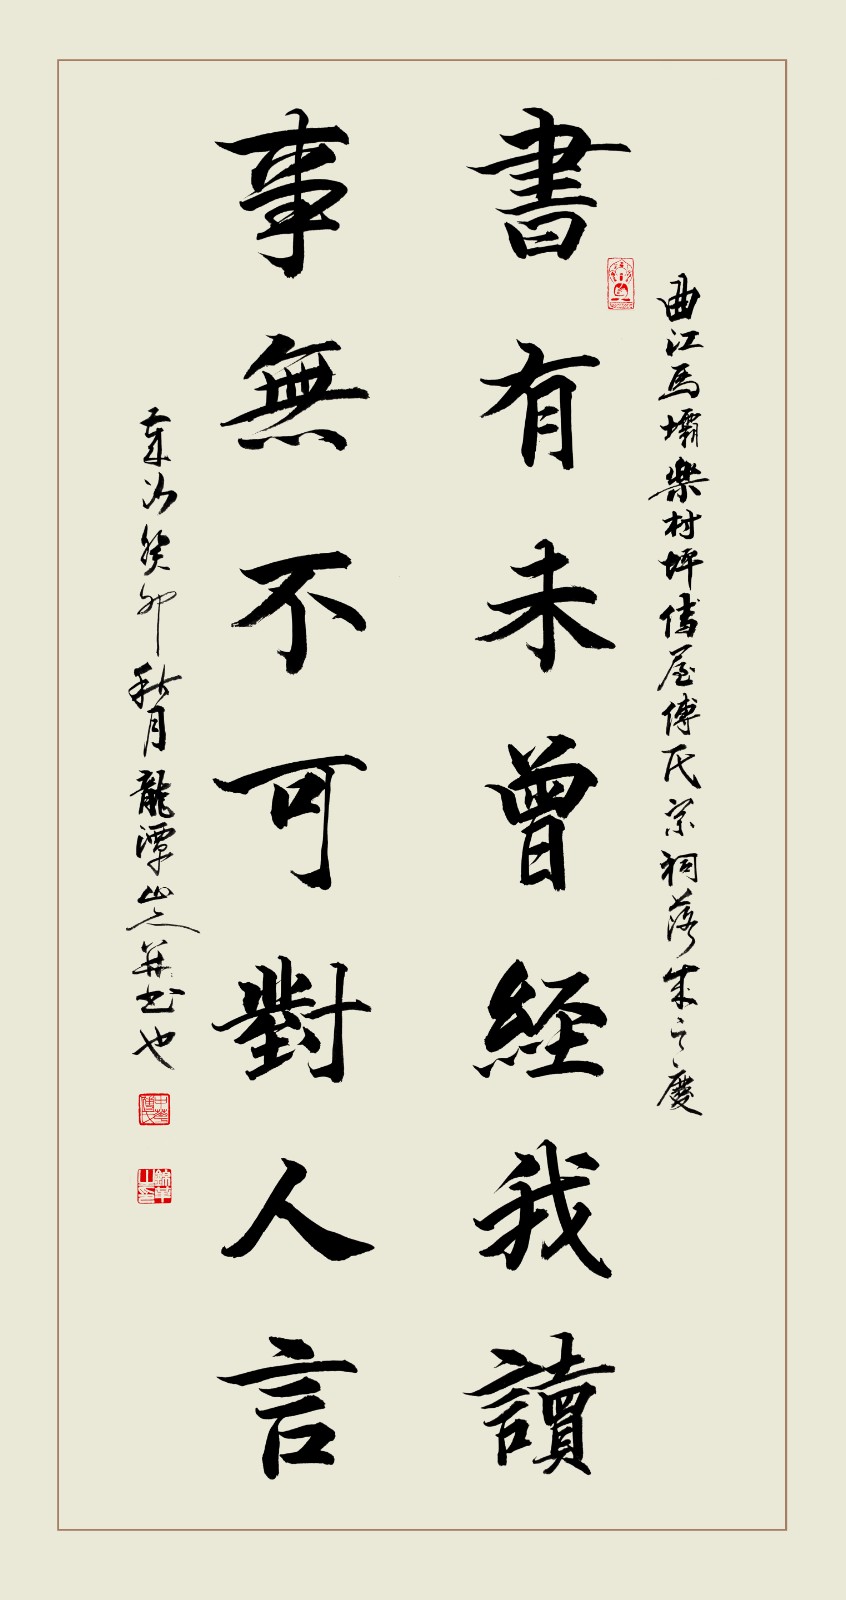 曲江馬壩樂村坪傅屋傅氏宗祠落成之慶
書有未曾經我讀
事無不可對人言
歲次癸卯秋月龍潭書也